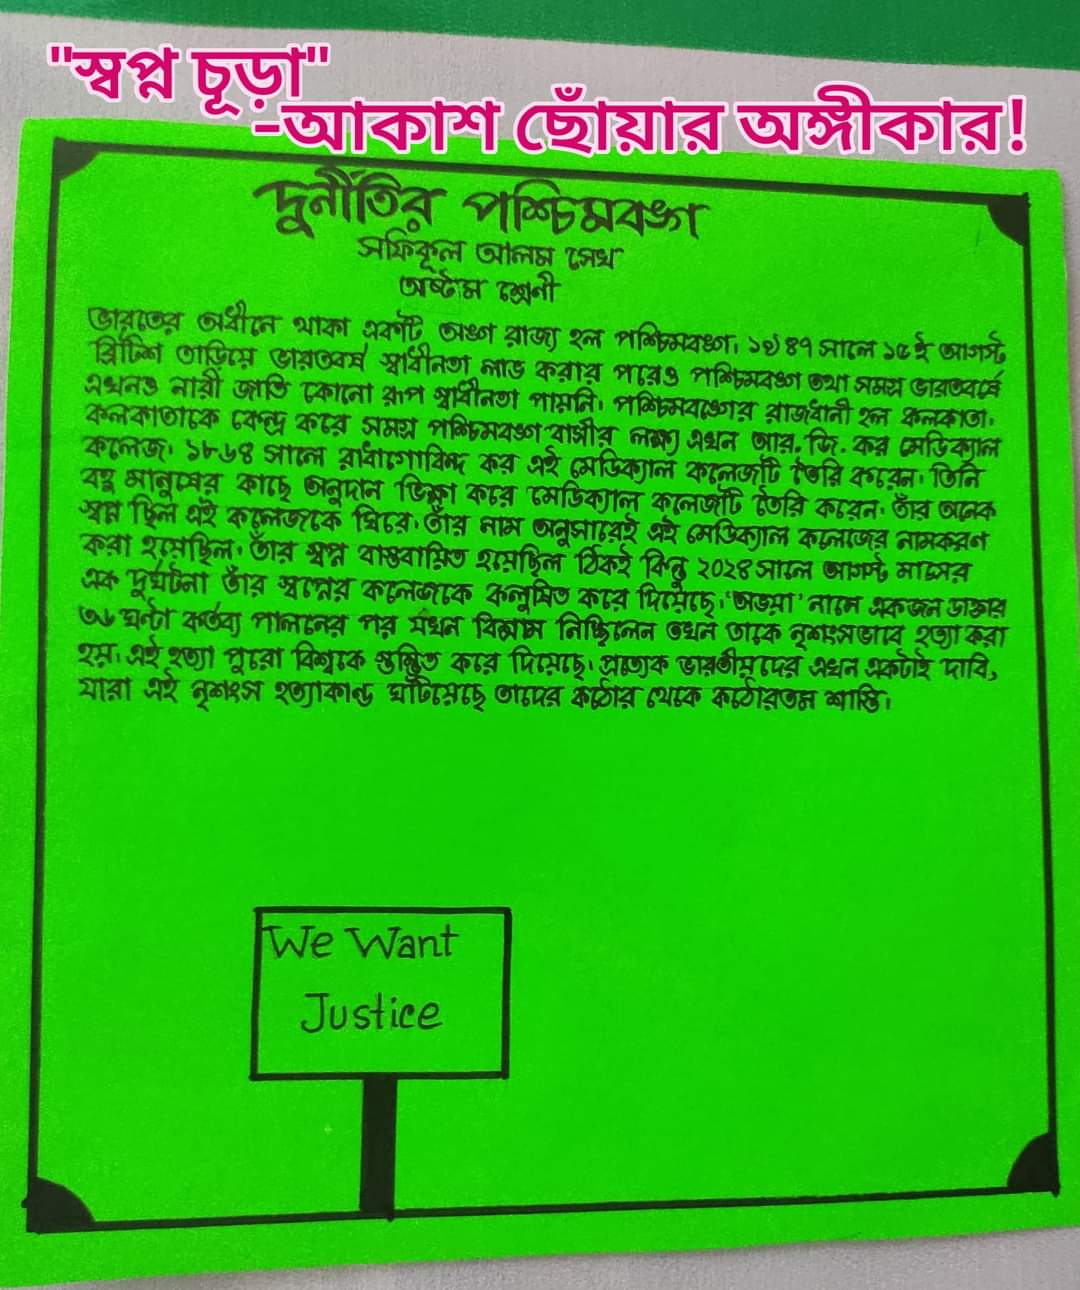 "স্বপ্ন চূড়া"
-আকাশ ছোঁয়ার অঙ্গীকার!
দুর্নীতির পশ্চিমবঙ্গ
সফিকুল আলম সেখ
অষ্টম শ্রেনী
ভারতের অধীনে থাকা একটি অঙ্গ রাজ্য হল পশ্চিমবঙ্গ। ১৯৪৭ সালে ১৫ই আগস্ট
ব্রিটিশ তাড়িয়ে ভারতবর্ষ স্বাধীনতা লাভ করার পরেও পশ্চিমবঙ্গ তথা সমগ্র ভারতবর্ষে
এখনও নারী জাতি কোনো রূপ স্বাধীনতা পায়নি। পশ্চিমবঙ্গের রাজধানী হল কলকাতা।
কলকাতাকে কেন্দ্র করে সমগ্র পশ্চিমবঙ্গ বাসীর লক্ষ্য এখন আর. জি. কর মেডিক্যাল
কলেজ। ১৮৬৪ সালে রাধাগোবিন্দ কর এই মেডিক্যাল কলেজটি তৈরি করেন। তিনি
বহু মানুষের কাছে অনুদান ভিক্ষা করে মেডিক্যাল কলেজটি তৈরি করেন। তাঁর অনেক
স্বপ্ন ছিল এই কলেজকে ঘিরে। তাঁর নাম অনুসারেই এই মেডিক্যাল কলেজের নামকরণ
করা হয়েছিল। তাঁর স্বপ্ন বাস্তবায়িত হয়েছিল ঠিকই কিন্তু ২০২৪ সালে আগস্ট মাসের
এক দুর্ঘটনা তাঁর স্বপ্নের কলেজকে কলুষিত করে দিয়েছে। 'অভয়া' নামে একজন ডাক্তার
৩৬ ঘন্টা কর্তব্য পালনের পর যখন বিশ্রাম নিচ্ছিলেন তখন তাকে নৃশংসভাবে হত্যা করা
হয়। এই হত্যা পুরো বিশ্বকে স্তম্ভিত করে দিয়েছে। প্রত্যেক ভারতীয়দের এখন একটাই দাবি,
যারা এই নৃশংস হত্যাকান্ড ঘটিয়েছে তাদের কঠোর থেকে কঠোরতম শাস্তি।
We Want
Justice